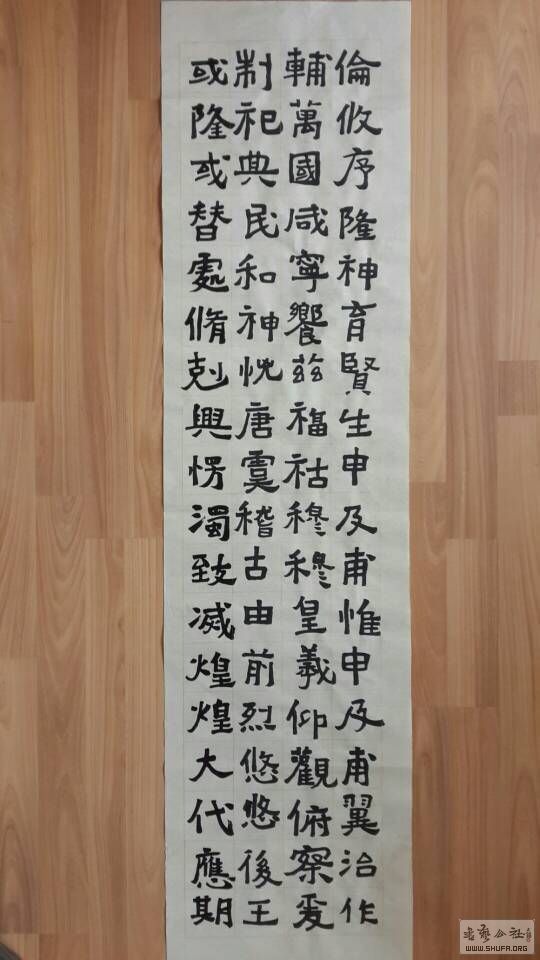 倫攸序隆神育賢生申及甫惟申及甫翼治作
輔萬國咸寧饗茲福祜穆穆皇羲仰觀俯察爰
制祀典民和神悅唐虞稽古由前烈悠悠後王
或隆或替處脩剋興愕濁致滅煌煌大代應期
WWW.SHUFA.ORG